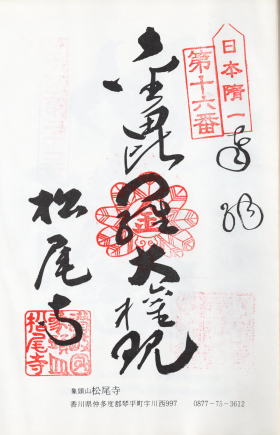 日本隋一
第十六番
金毘羅大権現
金
松尾寺
松尾寺
象頭山松尾寺
香川県仲多度郡琴平町字川西997 0877-75-3612